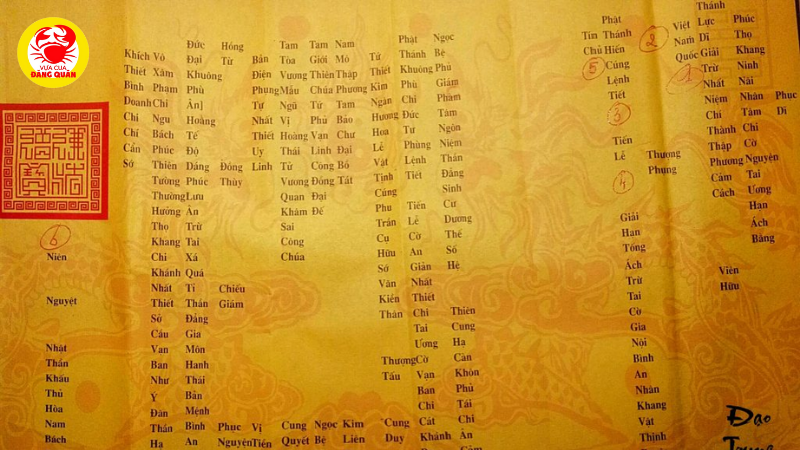 VỰA CUA
ĐĂNG QUÂN
Phục Di
Thánh
Phúc Thọ Khang Ninh Nài Nhân Tâm Chi Cờ Nguyện Tai Ương Han Ách Bằng
Lực Di Giải Trừ Nhất Niệm Chí Thành Thập Phương Cảm Cách
Viên Hữu
1
Việt Nam Quốc
2
Thượng Phụng
Phật Thánh Hiến Cúng Lệnh Tiết
3
Tiến Lễ
4
Giải Hạn Tống Ách Trừ Tai Cờ Gia Nội Bình An Nhân Khang Vật Thịnh
Tín Chủ
5
Ngọc Bệ Phủ Giám Phàm Tâm Ngôn Niệm Thân Đẳng Sinh Cư Dương Thế Số Hệ Thiên Cung Hạ Cần Khôn Phủ Tái Chi Ân
Phật Thánh Khuông Phù Chi Đức Từ Phùng Lệnh Tiết Tiến Lễ Cờ An Giản Nhất Thiết Chi Tai Ương Cờ Vạn Ban Chi Cát Khánh
Từ Thiết Kim Ngân Hương Hoa Lễ Vật Tịnh Cúng Phu Trần Cụ Hữu Sớ Văn Kiến Thân Thượng Tấu Cung Duy
Nam Mô Thập Phương Tam Bảo Chư Đại Bồ Tát Kim Liên
Tam Giới Thiên Chúa Tứ Phủ Vạn Linh Công Đồng Đại Đế Ngọc Bệ
Tam Tòa Vương Mẫu Ngũ Vị Hoàng Thái Tử Vương Quan Khâm Sai Công Chúa Cung Quyết
Bản Điện Phụng Tự Nhất Thiết Uy Linh Vị Tiền
Hồng Từ Đồng Thùy Chiếu Giám Phục Nguyện
Đức Đại Khuông Phù Ân] Hoàng Tế Độ Dáng Phúc Lưu Ân Trừ Tai Xá Quá Tỉ Thân Đẳng Gia Môn Hanh Thái Bản Mệnh Bình An
Vô Xâm Phạm Chí Ngu Bách Phúc Thiên Tường Thường Hưởng Thọ Khang Chi Khánh Nhất Thiết Sở Cầu Vạn Ban Như Ý Đán Thần Hạ
Khích Thiết Bình Doanh Chí Chí Cẩn Sớ
6
Niên Nguyệt Nhật Thần Khấu Thủ Hòa Nam Bách
Đạo